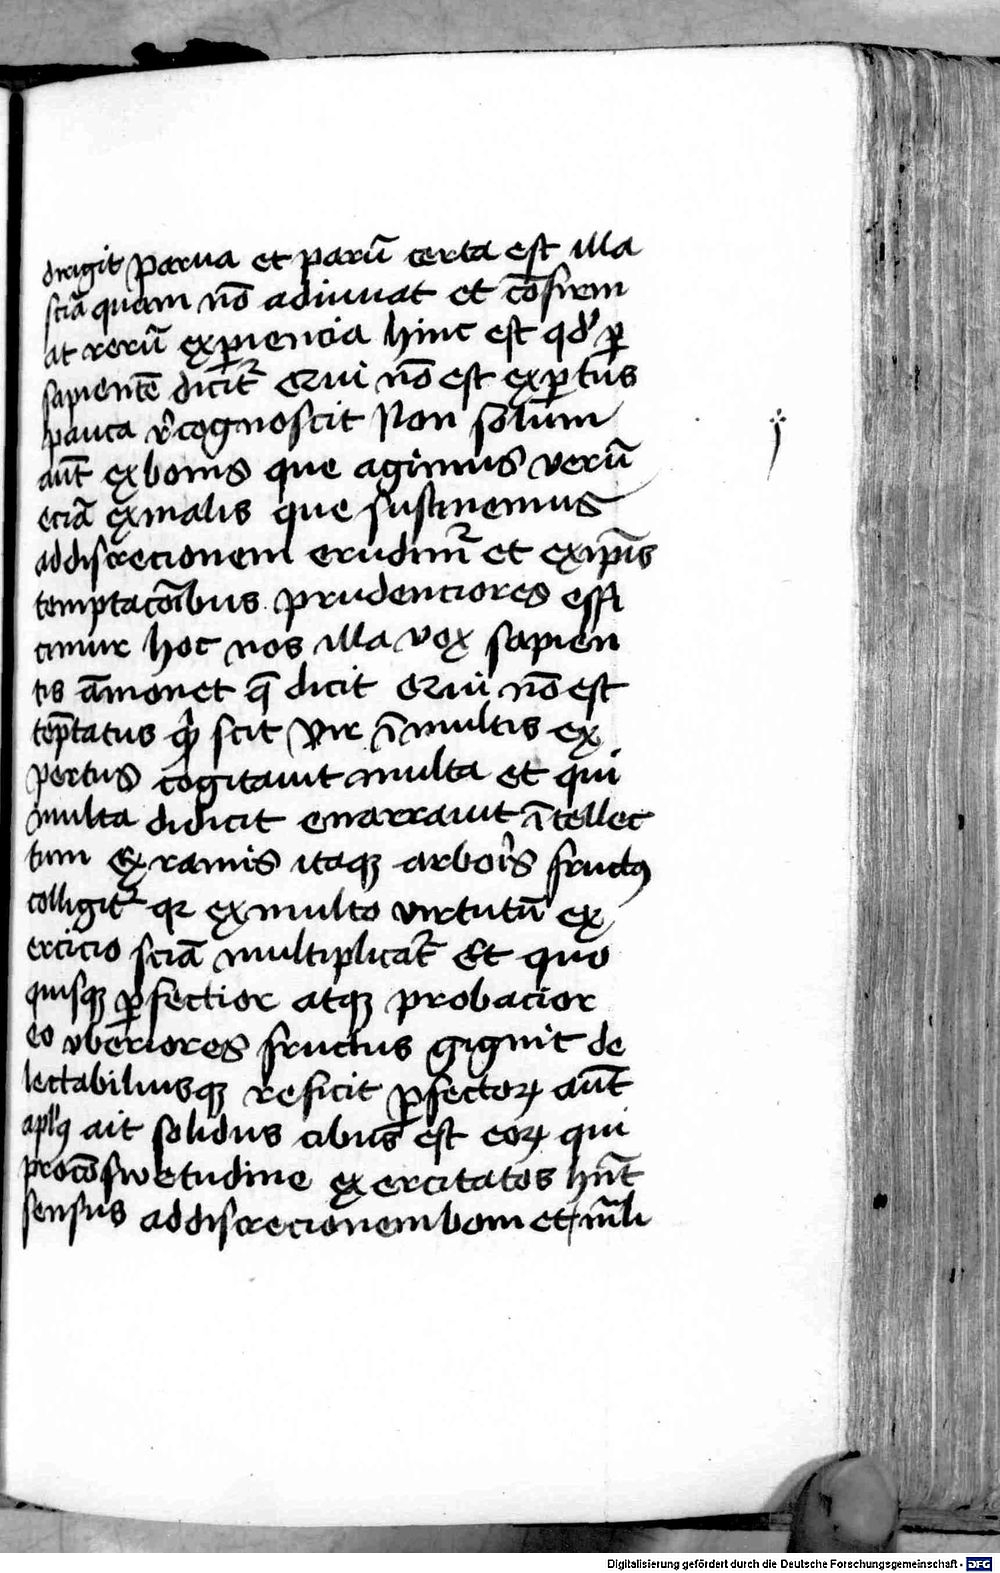 dirigit Parua et parū certa est illa
sciā quam nō adiuuat et cōfirm
at rerū exꝑiencia hinc est qd' ꝑ
sapientē dicit᷑ Qui nō est exꝑtus
pauca r̾cognoscit Non solum
aūt ex bonis que agimus verū
eciā ex malis que sustinemus
ad discrecionem erudim᷑ et ex ip̄is
temptacōibus prudenciores effi
cimur hoc nos illa vox sapien
tis āmonet q̄ dicit Qui nō est
tēptatus scit Vir ī multis ex
pertus cogitauit multa et qui
multa didicit enarrauit ītellec
tum Ex ramis itaqꝫ arboris fructꝰ
colligit᷑ qꝛ ex multo virtutū ex
ercicio sciā multiplicat᷑ Et quo
quisqꝫ ꝑfectior atqꝫ probacior
eo vberiores fructus gignit de
lectabiliusqꝫ reficit ꝑfectoꝝ aūt
apl'ꝰ ait solidus cibus est eoꝝ qui
pro cōswetudine exercitatos hn̄t
sensus ad discrecionem boni et mali
Digitalisierung gefördert durch die Deutsche Forschungsgemeinschaft - DFG